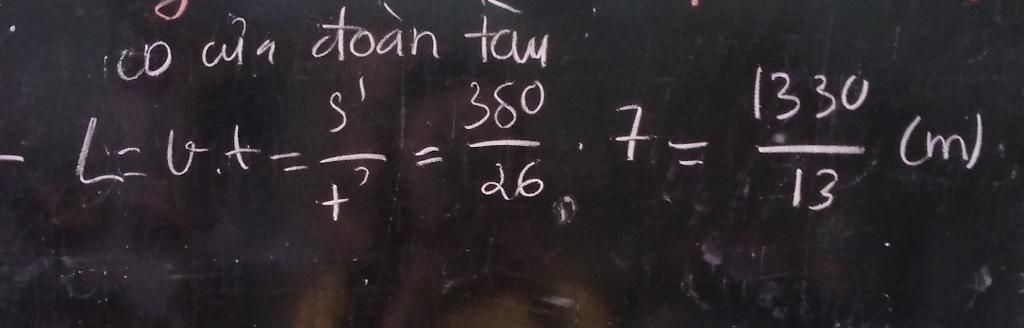 có của đoàn tàu
- L = v.t = s'/t' = 380/26 . 7 = 1330/13 (m)